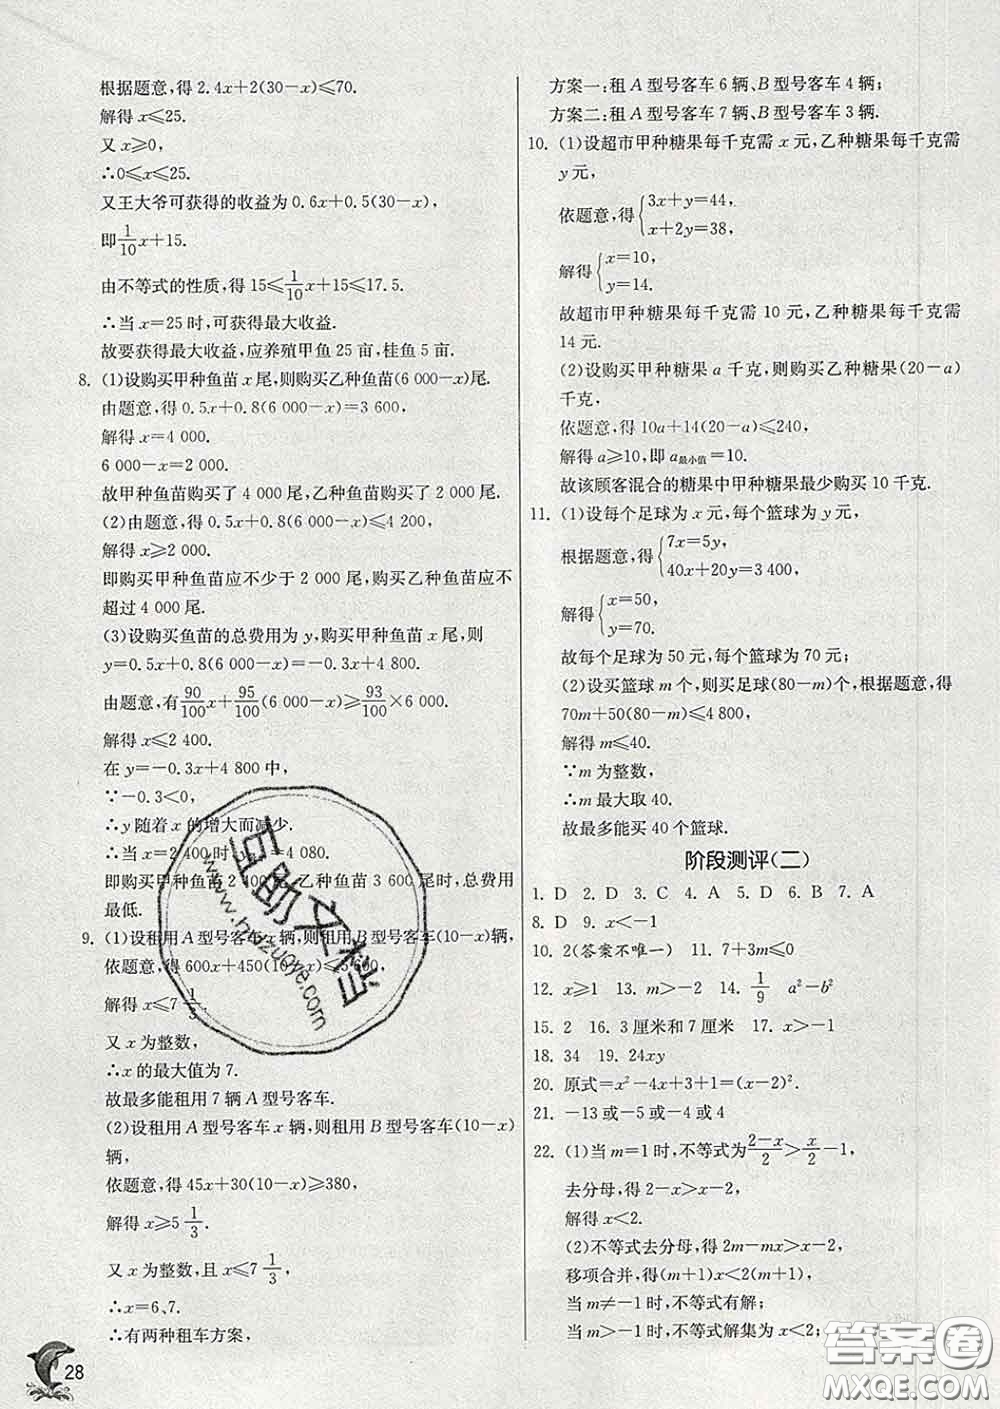 根据题意,得 2.4x+2(30-x)≤70.
解得 x≤25.
又 x≥0,
∴0≤x≤25.
又王大爷可获得的收益为 0.6x+0.5(30-x),
即 1/10 x+15.
由不等式的性质,得 15≤1/10 x+15≤17.5.
∴当 x=25 时,可获得最大收益.
故要获得最大收益,应养殖甲鱼 25 亩,桂鱼 5 亩.
8. (1)设购买甲种鱼苗 x 尾,则购买乙种鱼苗(6 000-x)尾.
由题意,得 0.5x+0.8(6 000-x)=3 600,
解得 x=4 000.
6 000-x=2 000.
故甲种鱼苗购买了 4 000 尾,乙种鱼苗购买了 2 000 尾.
(2)由题意,得 0.5x+0.8(6 000-x)≤4 200,
解得 x≥2 000.
即购买甲种鱼苗应不少于 2 000 尾,购买乙种鱼苗应不
超过 4 000 尾.
(3)设购买鱼苗的总费用为 y,购买甲种鱼苗 x 尾,则
y=0.5x+0.8(6 000-x)=-0.3x+4 800.
由题意,有 90/100 x+95/100(6 000-x)≥93/100×6 000.
解得 x≤2 400.
在 y=-0.3x+4 800 中,
∵-0.3<0,
∴y 随着 x 的增大而减少.
∴当 x=2 400 时 =4 080.
即购买甲种鱼苗 2 400 尾,乙种鱼苗 3 600 尾时,总费用
最低.
9. (1)设租用 A 型号客车 x 辆,则租用 B 型号客车(10-x)辆,
依题意,得 600x+450(10-x)≤5 600,
解得 x≤7 1/3.
又 x 为整数,
∴x 的最大值为 7.
故最多能租用 7 辆 A 型号客车.
(2)设租用 A 型号客车 x 辆,则租用 B 型号客车(10-x)
辆,
依题意,得 45x+30(10-x)≥380,
解得 x≥5 1/3.
又 x 为整数,且 x≤7 1/3,
∴x=6、7.
∴有两种租车方案,
28
方案一:租 A 型号客车 6 辆、B 型号客车 4 辆;
方案二:租 A 型号客车 7 辆、B 型号客车 3 辆.
10. (1)设超市甲种糖果每千克需 x 元,乙种糖果每千克需
y 元,
依题意,得{3x+y=44,
x+2y=38,
解得{x=10,
y=14.
故超市甲种糖果每千克需 10 元,乙种糖果每千克需
14 元.
(2)设购买甲种糖果 a 千克,则购买乙种糖果(20-a)
千克,
依题意,得 10a+14(20-a)≤240,
解得 a≥10,即 a最小值=10.
故该顾客混合的糖果中甲种糖果最少购买 10 千克.
11. (1)设每个足球为 x 元,每个篮球为 y 元,
根据题意,得{7x=5y,
40x+20y=3 400,
解得{x=50,
y=70.
故每个足球为 50 元,每个篮球为 70 元;
(2)设买篮球 m 个,则买足球(80-m)个,根据题意,得
70m+50(80-m)≤4 800,
解得 m≤40.
∵m 为整数,
∴m 最大取 40.
故最多能买 40 个篮球.
阶段测评(二)
1. D 2. D 3. C 4. A 5. D 6. B 7. A
8. D 9. x<-1
10. 2(答案不唯一) 11. 7+3m≤0
12. x≥1 13. m>-2 14. 1/9 a²-b²
15. 2 16. 3 厘米和 7 厘米 17. x>-1
18. 34 19. 24xy
20. 原式=x²-4x+3+1=(x-2)².
21. -13 或-5 或-4 或 4
22. (1)当 m=1 时,不等式为 (2-x)/2 > x/2-1,
去分母,得 2-x>x-2,
解得 x<2.
(2)不等式去分母,得 2m-mx>x-2,
移项合并,得(m+1)x<2(m+1),
当 m≠-1 时,不等式有解;
当 m>-1 时,不等式解集为 x<2;
互助文档
www.hdzuoye.com
答案圈
MXQE.COM